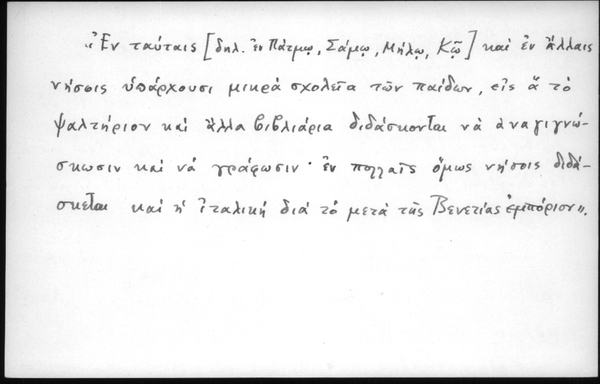 «Ἐν ταύταις [δηλ. ἐν Πάτμῳ, Σάμῳ, Μήλῳ, Κῷ] καὶ ἐν ἄλλαις
νήσοις ὑπάρχουσι μικρὰ σχολεῖα τῶν παίδων, εἰς ἃ τὸ
ψαλτήριον καὶ ἄλλα βιβλιάρια διδάσκονται νὰ ἀναγιγνώ-
σκωσιν καὶ νὰ γράφωσιν· ἐν πολλαῖς ὅμως νήσοις διδά-
σκεται καὶ ἡ ἰταλικὴ διὰ τὸ μετὰ τῆς Βενετίας ἐμπόριον».